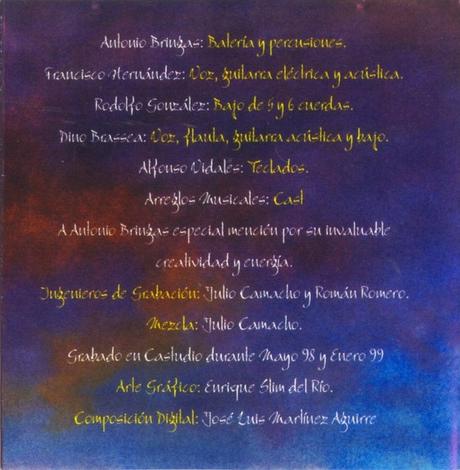 Antonio Bringas: Batería y percusiones.
Francisco Hernández: Voz, guitarra eléctrica y acústica.
Rodolfo González: Bajo de 5 y 6 cuerdas.
Dino Brassea: Voz, flauta, guitarra acústica y bajo.
Alfonso Vidales: Teclados.
Arreglos Musicales: Cast
A Antonio Bringas especial mención por su invaluable
creatividad y energía.
Ingenieros de Grabación: Julio Camacho y Román Romero.
Mezcla: Julio Camacho.
Grabado en Castudio durante Mayo 98 y Enero 99
Arte Gráfico: Enrique Slim del Río.
Composición Digital: José Luis Martínez Aguirre